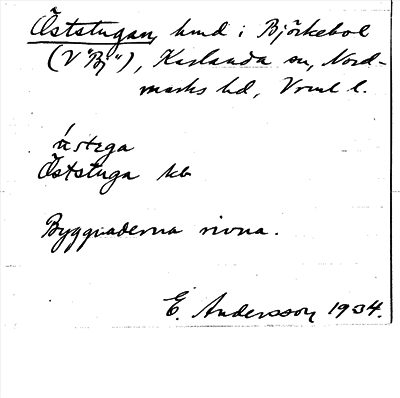 Öststugan, hmd i Björkebol
(V "Bj"), Karlanda sn, Nord-
marks hd, Vrml l.
ùstega
Öststuga kb
Byggnaderna rivna.
E. Andersson 1934.